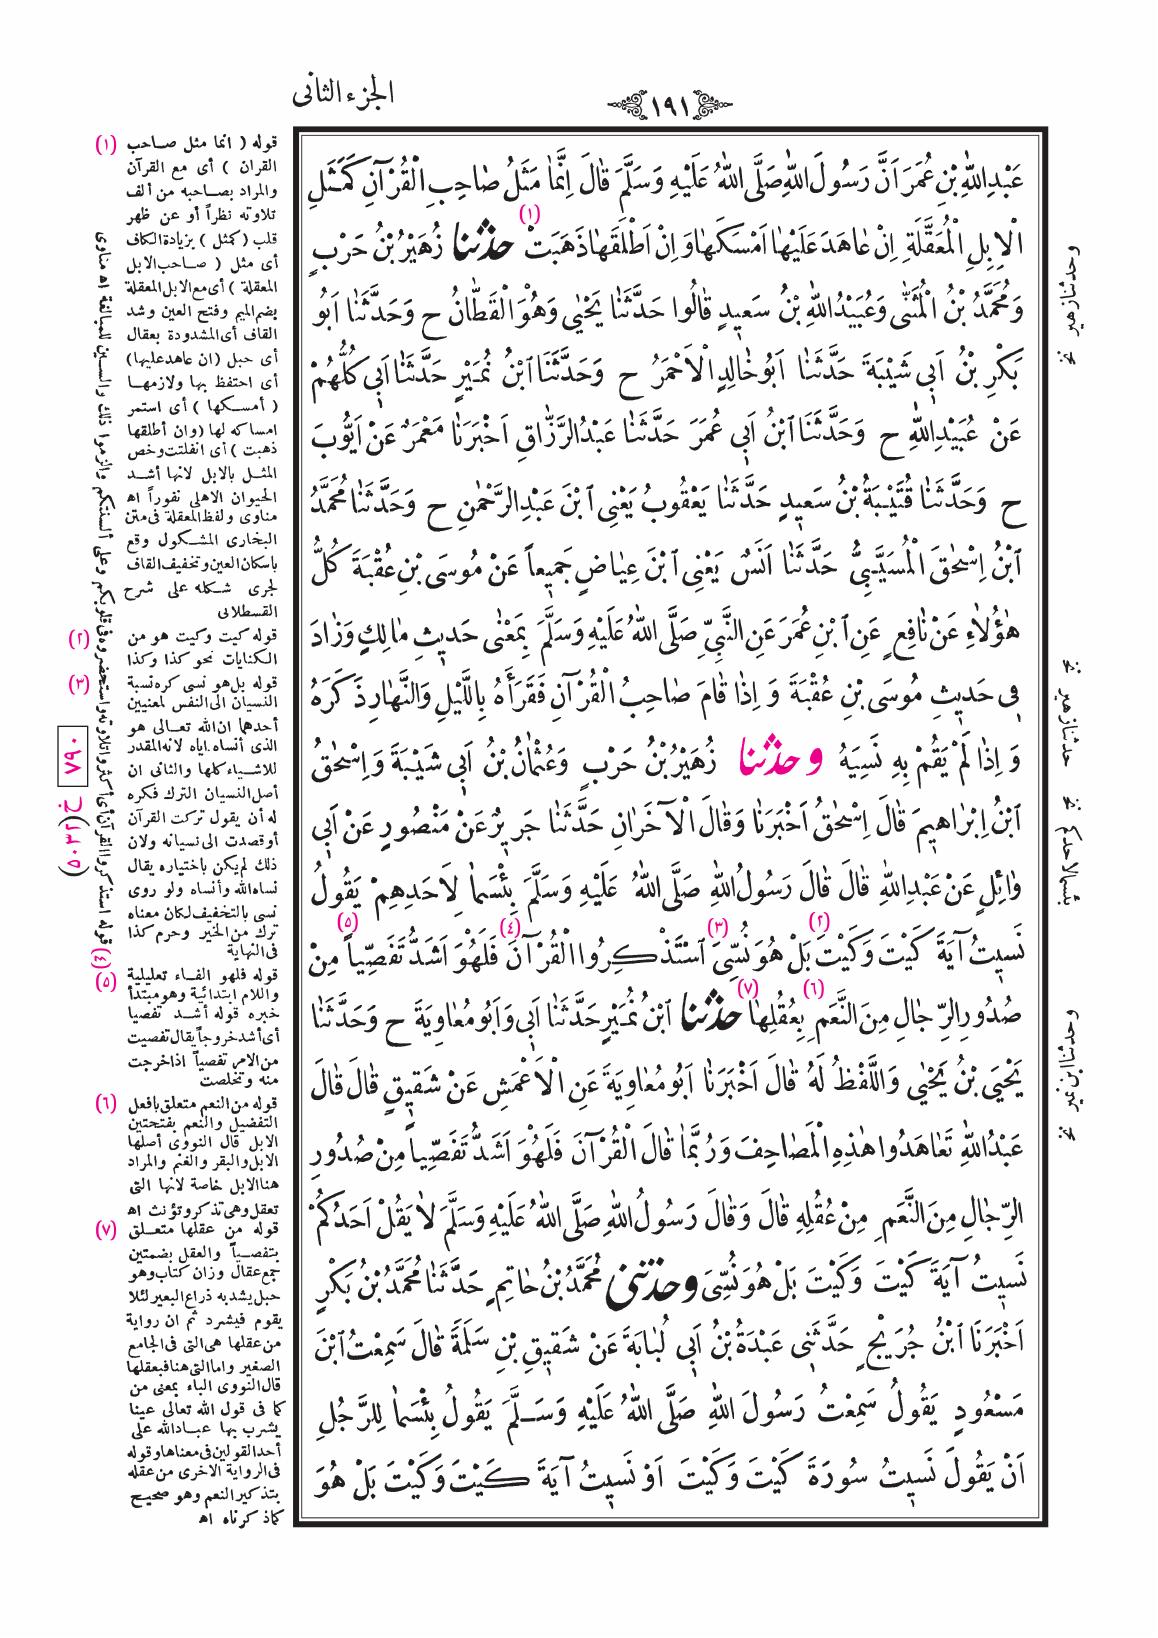 الجزء الثانى
١٩١
عَبْدِاللّٰهِ بْنِ عُمَرَ اَنَّ رَسُولَ اللّٰهِ صَلَّى اللّٰهُ عَلَيْهِ وَسَلَّمَ قَالَ اِنَّمَا مَثَلُ صَاحِبِ الْقُرْآنِ كَمَثَلِ
الْاِبِلِ الْمُعَقَّلَةِ اِنْ عَاهَدَ عَلَيْهَا اَمْسَكَهَا وَاِنْ اَطْلَقَهَا ذَهَبَتْ (١) حَدَّثَنَا زُهَيْرُ بْنُ حَرْبٍ
وَمُحَمَّدُ بْنُ الْمُثَنّٰى وَعُبَيْدُاللّٰهِ بْنُ سَعِيدٍ قَالُوا حَدَّثَنَا يَحْيٰى وَهُوَ الْقَطَّانُ ح وَحَدَّثَنَا اَبُو
بَكْرِ بْنُ اَبِى شَيْبَةَ حَدَّثَنَا اَبُو خَالِدٍ الْاَحْمَرُ ح وَحَدَّثَنَا ابْنُ نُمَيْرٍ حَدَّثَنَا اَبِى كُلُّهُمْ
عَنْ عُبَيْدِاللّٰهِ ح وَحَدَّثَنَا ابْنُ اَبِى عُمَرَ حَدَّثَنَا عَبْدُالرَّزَّاقِ اَخْبَرَنَا مَعْمَرٌ عَنْ اَيُّوبَ
ح وَحَدَّثَنَا قُتَيْبَةُ بْنُ سَعِيدٍ حَدَّثَنَا يَعْقُوبُ يَعْنِى ابْنَ عَبْدِالرَّحْمٰنِ ح وَحَدَّثَنَا مُحَمَّدُ
ابْنُ اِسْحٰقَ الْمُسَيَّبِىُّ حَدَّثَنَا اَنَسٌ يَعْنِى ابْنَ عِيَاضٍ جَمِيعاً عَنْ مُوسَى بْنِ عُقْبَةَ كُلُّ
هٰؤُلَاءِ عَنْ نَافِعٍ عَنِ ابْنِ عُمَرَ عَنِ النَّبِىِّ صَلَّى اللّٰهُ عَلَيْهِ وَسَلَّمَ بِمَعْنٰى حَدِيثِ مَالِكٍ وَزَادَ
فِى حَدِيثِ مُوسَى بْنِ عُقْبَةَ وَاِذَا قَامَ صَاحِبُ الْقُرْآنِ فَقَرَأَهُ بِاللَّيْلِ وَالنَّهَارِ ذَكَرَهُ
وَاِذَا لَمْ يَقُمْ بِهِ نَسِيَهُ وحَدَّثَنَا زُهَيْرُ بْنُ حَرْبٍ وَعُثْمَانُ بْنُ اَبِى شَيْبَةَ وَاِسْحٰقُ
ابْنُ اِبْرَاهِيمَ قَالَ اِسْحٰقُ اَخْبَرَنَا وَقَالَ الْآخَرَانِ حَدَّثَنَا جَرِيرٌ عَنْ مَنْصُورٍ عَنْ اَبِى
وَائِلٍ عَنْ عَبْدِاللّٰهِ قَالَ قَالَ رَسُولُ اللّٰهِ صَلَّى اللّٰهُ عَلَيْهِ وَسَلَّمَ بِئْسَمَا لِاَحَدِهِمْ يَقُولُ
نَسِيتُ آيَةَ كَيْتَ وَكَيْتَ (٢) بَلْ هُوَ نُسِّىَ (٣) اسْتَذْكِرُوا الْقُرْآنَ (٤) فَلَهُوَ اَشَدُّ تَفَصِّياً (٥) مِنْ
صُدُورِ الرِّجَالِ مِنَ النَّعَمِ (٦) بِعُقُلِهَا (٧) حَدَّثَنَا ابْنُ نُمَيْرٍ حَدَّثَنَا اَبِى وَاَبُو مُعَاوِيَةَ ح وَحَدَّثَنَا
يَحْيَى بْنُ يَحْيٰى وَاللَّفْظُ لَهُ قَالَ اَخْبَرَنَا اَبُو مُعَاوِيَةَ عَنِ الْاَعْمَشِ عَنْ شَقِيقٍ قَالَ قَالَ
عَبْدُاللّٰهِ تَعَاهَدُوا هٰذِهِ الْمَصَاحِفَ وَرُبَّمَا قَالَ الْقُرْآنَ فَلَهُوَ اَشَدُّ تَفَصِّياً مِنْ صُدُورِ
الرِّجَالِ مِنَ النَّعَمِ مِنْ عُقُلِهِ قَالَ وَقَالَ رَسُولُ اللّٰهِ صَلَّى اللّٰهُ عَلَيْهِ وَسَلَّمَ لَا يَقُلْ اَحَدُكُمْ
نَسِيتُ آيَةَ كَيْتَ وَكَيْتَ بَلْ هُوَ نُسِّىَ وحَدَّثَنِى مُحَمَّدُ بْنُ حَاتِمٍ حَدَّثَنَا مُحَمَّدُ بْنُ بَكْرٍ
اَخْبَرَنَا ابْنُ جُرَيْجٍ حَدَّثَنِى عَبْدَةُ بْنُ اَبِى لُبَابَةَ عَنْ شَقِيقِ بْنِ سَلَمَةَ قَالَ سَمِعْتُ ابْنَ
مَسْعُودٍ يَقُولُ سَمِعْتُ رَسُولَ اللّٰهِ صَلَّى اللّٰهُ عَلَيْهِ وَسَلَّمَ يَقُولُ بِئْسَمَا لِلرَّجُلِ
اَنْ يَقُولَ نَسِيتُ سُورَةَ كَيْتَ وَكَيْتَ اَوْ نَسِيتُ آيَةَ كَيْتَ وَكَيْتَ بَلْ هُوَ
وحدثنا زهير نخ
حدثنا زهير نخ
بئسما لاحدكم نخ
وحدثنا ابن نمير نخ
(١) قوله ( انما مثل صاحب
القران ) أى مع القرآن
والمراد بصاحبه من ألف
تلاوته نظراً أو عن ظهر
قلب (كمثل ) بزيادة الكاف
أى مثل ( صاحب الابل
المعقلة ) أى مع الابل المعقلة
بضم الميم وفتح العين وشد
القاف أى المشدودة بعقال
أى حبل (ان عاهد عليها)
أى احتفظ بها ولازمها
( أمسكها ) أى استمر
امساكه لها (وان أطلقها
ذهبت ) أى انفلتت وخص
المثل بالابل لانها أشد
الحيوان الاهلى نفوراً اه
مناوى ولفظ المعقلة فى متن
البخارى المشكول وقع
باسكان العين وتخفيف القاف
لجرى شكله على شرح
القسطلانى
(٢) قوله كيت وكيت هو من
الكنايات نحو كذا وكذا
(٣) قوله بل هو نسى كره نسبة
النسيان الى النفس لمعنيين
أحدهما ان الله تعالى هو
الذى أنساه اياه لانه المقدر
للاشياء كلها والثانى ان
أصل النسيان الترك فكره
له أن يقول تركت القرآن
أو قصدت الى نسيانه ولان
ذلك لم يكن باختياره يقال
نساه الله وأنساه ولو روى
نسى بالتخفيف لكان معناه
ترك من الخير وحرم كذا
فى النهاية
(٤) قوله استذكروا القرآن أى أكثروا تلاوته واستحضروه فى قلوبكم وعلى ألسنتكم والزموا ذلك والسين للمبالغة اه مناوى
(٥) قوله فلهو الفاء تعليلية
واللام ابتدائية وهو مبتدأ
خبره قوله أشد تفصيا
أى أشد خروجاً يقال تفصيت
من الامر تفصياً اذا خرجت
منه وتخلصت
(٦) قوله من النعم متعلق بافعل
التفضيل والنعم بفتحتين
الابل قال النووى أصلها
الابل والبقر والغنم والمراد
هنا الابل خاصة لانها التى
تعقل وهى تذكر وتؤنث اه
(٧) قوله من عقلها متعلق
بتفصياً والعقل بضمتين
جمع عقال وزان كتاب وهو
حبل يشد به ذراع البعير لئلا
يقوم فيشرد ثم ان رواية
من عقلها هى التى فى الجامع
الصغير واما التى هنا فبعقلها
قال النووى الباء بمعنى من
كما فى قول الله تعالى عينا
يشرب بها عباد الله على
أحد القولين فى معناها وقوله
فى الرواية الاخرى من عقله
بتذكير النعم وهو صحيح
كما ذكرناه اه
٧٩٠
خ(٥٠٣٢)